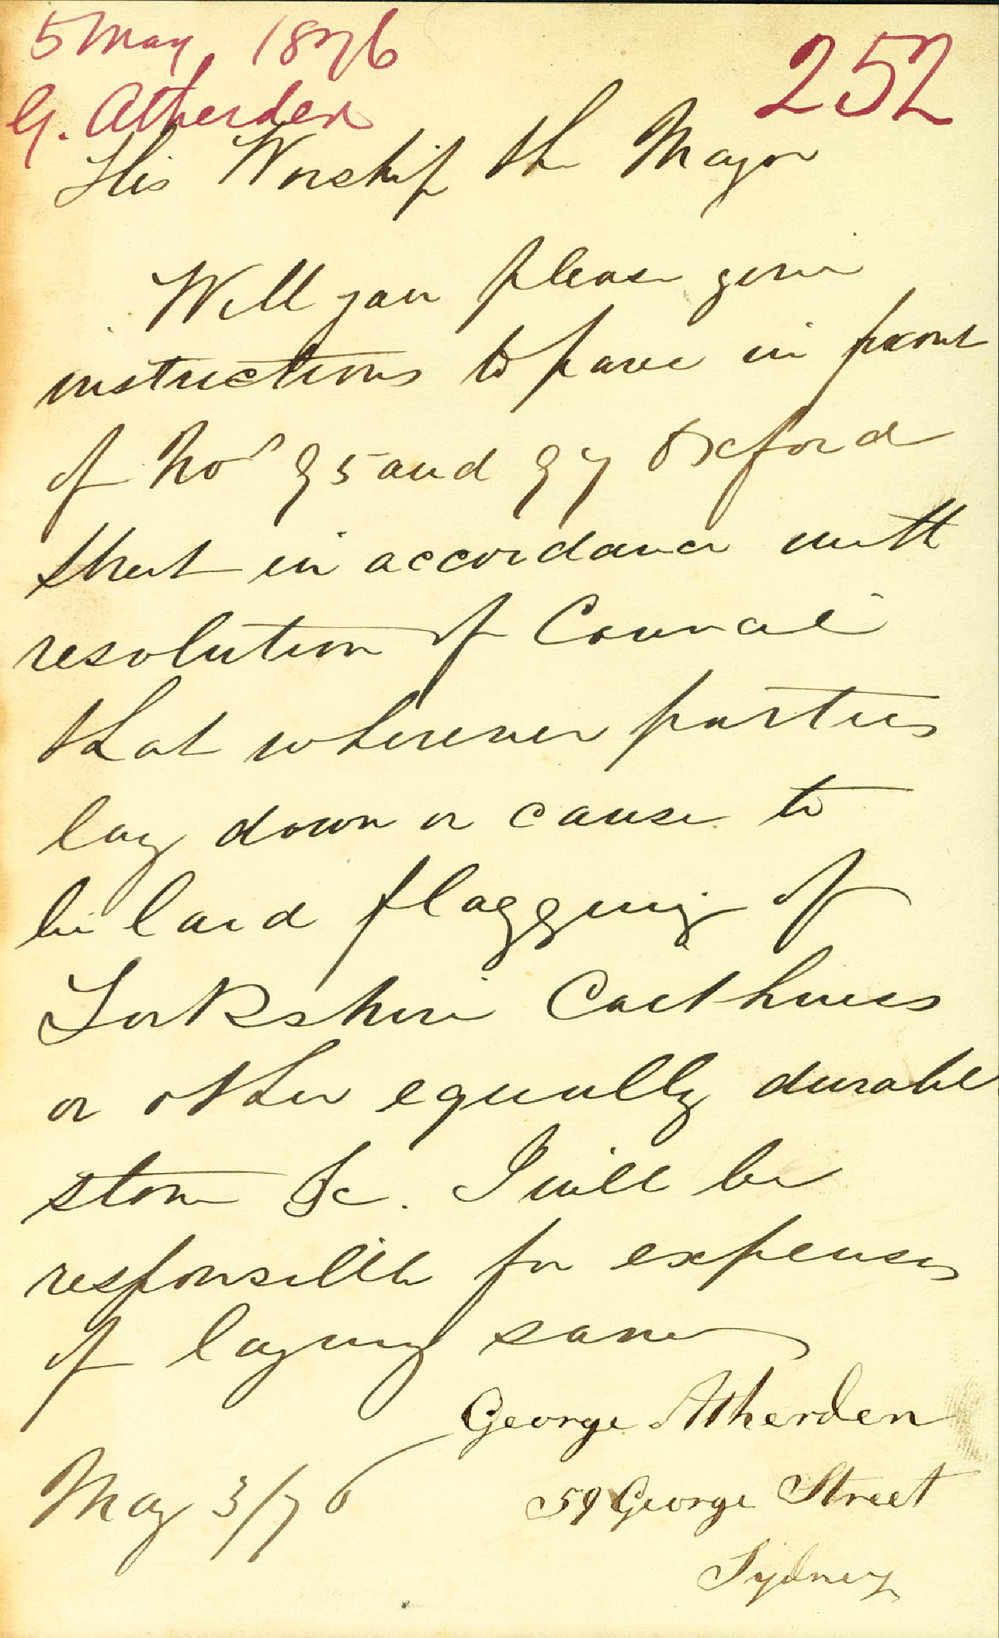 5 May 1876
252
G. Atherden
His Worship the Mayor
Will you please give
instructions to pave in front
of Nos 95 and 97 Oxford
Street in accordance with
resolution of Council
that wherever parties
lay down or cause to
be laid flagging of
Yorkshire Caithness
or other equally durable
stone &c. I will be
responsible for expenses
of laying same
George Atherden
May 3/76
59 George Street
Sydney